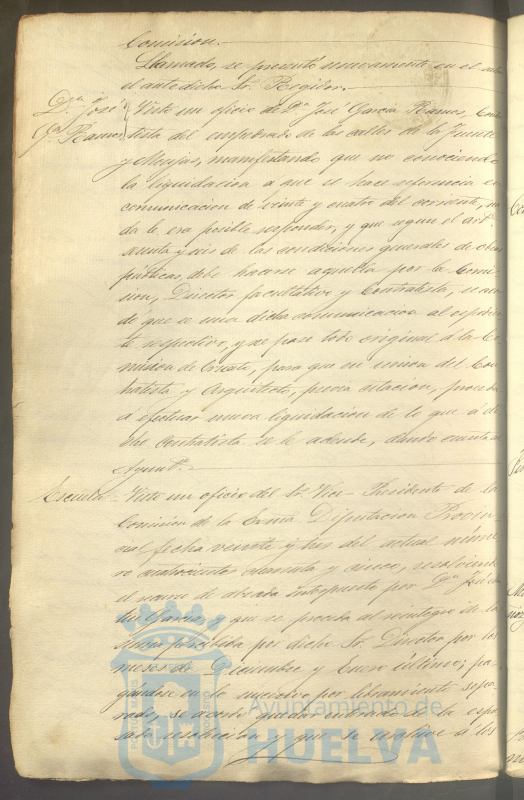 Comision.
Llamado, se presentó nuevamente en el
el antedicho Sr. Regidor.
Dn. José
Ga. Ramos
Visto un oficio de Dn. José Garcia Ramos, Con-
tista del empedrado de las calles de la Fuente
y Monjas, manifestando que no conociendo
la liquidacion a que se hace referencia en
comunicacion de veinte y cuatro del corriente, na
da le era posible responder, y que segun el artº
senta y seis de las condiciones generales de obras
públicas, debe hacerse aquella por la Comi
sion, Director facultativo y Contratista, se acor
dó que se una dicha comunicacion al espedien
te respectivo, y se pase todo original á la Co
mision de Ornato, para que en union del Con
tratista y Arquitecto, previa citacion, proceda
á efectuar nueva liquidacion de lo que á di
cho Contratista se le adeude, dando cuenta al
Ayuntº.
Escuela
Visto un oficio del Sr. Vice-Presidente de la
Comision de la Exma Diputacion Provin-
cial, fecha veinte y tres del actual núme
ro cuatrocientos ochenta y cinco, resolviendo
el recurso de alzada interpuesto por Dn. José
Garcia, y que se proceda al reintegro de lo
percibido por dicho Sr. Director por los
meses de Diciembre y Enero últimos, pa
gándose en lo sucesivo por libramiento sepa
rado, se acordó quedar enterado de la espre
sada resolucion y que se
á los
Ayuntamiento de
HUELVA